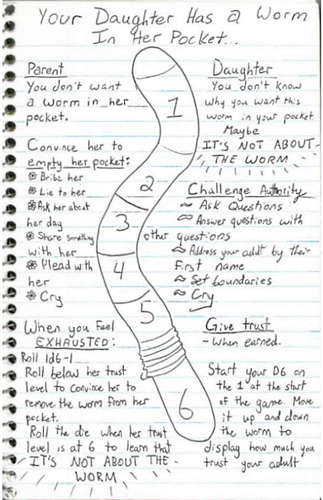 Your Daughter Has a Worm
In Her Pocket...
Parent
You don't want
a worm in her
pocket.
Convince her to
empty her pocket:
Bribe her
Lie to her
Ask her about
her day
Share something
with her
Plead with
her
Cry
When you feel
EXHAUSTED:
Roll 1d6-1
Roll below her trust
level to convince her to
remove the worm from her
pocket.
Roll the die when her trust
level is at 6 to learn that
IT'S NOT ABOUT THE
WORM
1
2
3
4
5
6
Daughter
You don't know
why you want this
worm in your pocket
Maybe
IT'S NOT ABOUT
THE WORM
Challenge Authority
~ Ask Questions
~ Answer questions with
other questions
~ Address your adult by their
first name
~ Set boundaries
~ Cry
Give trust
- When earned.
Start your D6 on
the 1 at the start
of the game. Move
it up and down
the worm to
display how much you
trust your adult